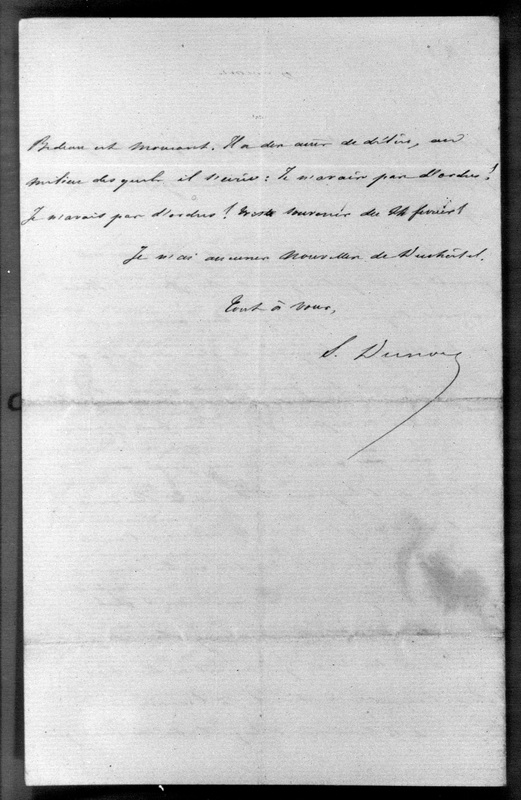 Bedeau est mourant. Il a des accès de délire, au
milieu desquels il s'écrie: Je n'avais pas d'ordres!
Je n'avais pas d'ordres! triste souvenir du 24 février!
Je n'ai aucunes nouvelles de Duchâtel.
Tout à vous,
S. Dumon